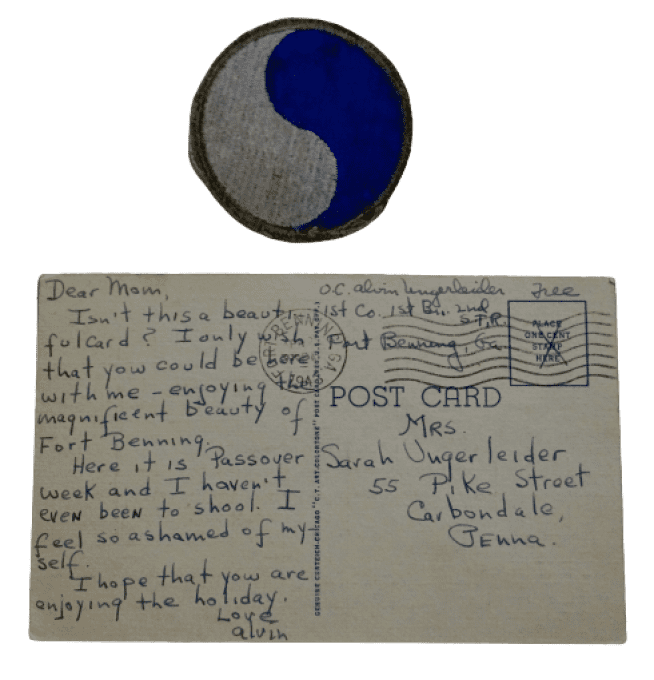 Dear Mom,
Isn't this a beauti-
ful card? I only wish
that yow could be here
with me - enjoying the
magnificent beauty of
Fort Benning.
Here it is Passover
week and I haven't
even been to shool. I
feel so ashamed of my
self.
I hope that yow are
enjoying the holiday.
Love
alvin
GENUINE CURTEICH-CHICAGO "C.T. ART-COLORTONE" POST CARD
FORT BENNING, GA.
O.C. alvin Ungerleider Free
1st Co. 1st Bn. 2nd
S.T.R.
Fort Benning, Ga.
PLACE
ONE CENT
STAMP
HERE
POST CARD
MRS.
Sarah Ungerleider
55 Pike Street
Carbondale,
Penna.